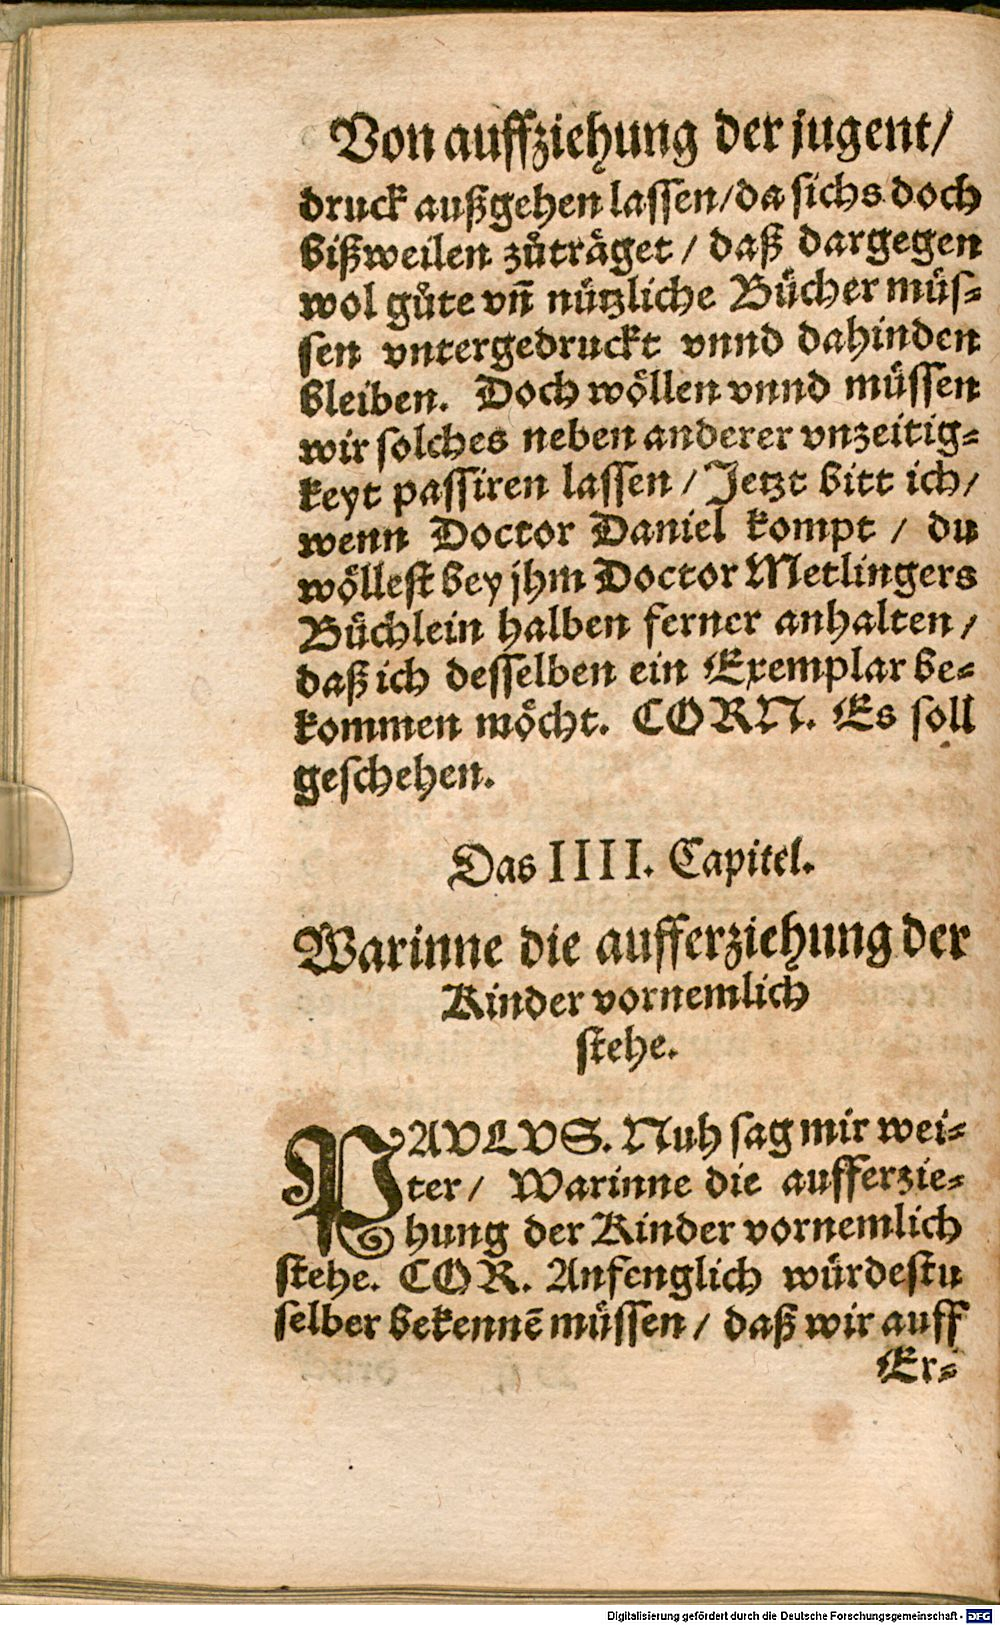 Von auffziehung der jugent/
druck außgehen lassen/da sichs doch
bißweilen zůtrÃ¤get / daß dargegen
wol gůte vñ nützliche Bücher müs-
sen vntergedruckt vnnd dahinden
bleiben. Doch wöllen vnnd müssen
wir solches neben anderer vnzeitig-
keyt passiren lassen / Jetzt bitt ich/
wenn Doctor Daniel kompt / du
wöllest bey jhm Doctor Metlingers
Büchlein halben ferner anhalten /
daß ich desselben ein Exemplar be-
kommen möcht. CORN. Es soll
geschehen.
Das IIII. Capitel.
Warinne die aufferziehung der
Kinder vornemlich
stehe.
PAVLVS. Nuh sag mir wei-
ter / Warinne die aufferzie-
hung der Kinder vornemlich
stehe. COR. Anfenglich würdestu
selber bekennẽ müssen / daß wir auff
Er-
Digitalisierung gefördert durch die Deutsche Forschungsgemeinschaft - DFG